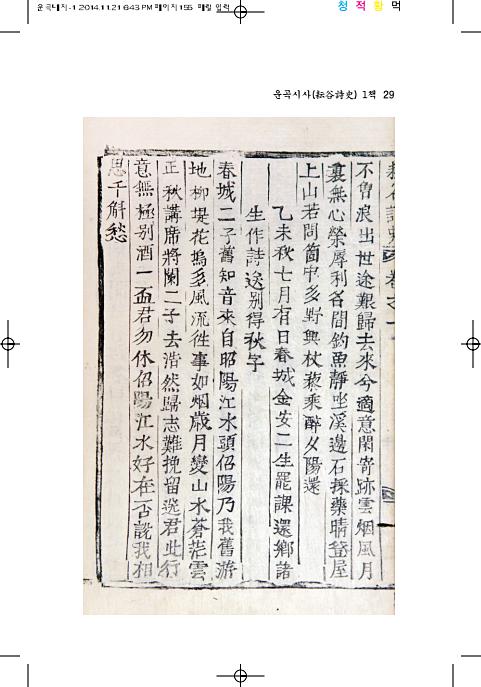 운곡내지-1 2014.11.21 6:43 PM 페이지155 매킬 입력
청 적 황 먹
운곡시사(耘谷詩史) 1책 29
不曾浪出世途艱歸去來兮適意閑寄跡雲烟風月
裏無心榮辱利名間釣魚靜坐溪邊石採藥晴登屋
上山若問箇中多野興杖藜乘醉夕陽還
乙未秋七月有日春城金安二生罷課還鄉諸
生作詩送別得秋字
春城二子舊知音來自昭陽江水頭佋陽乃我舊游
地柳堤花塢多風流徃事如烟歲月變山水蒼茫雲
正秋講席將闌二子去浩然歸志難挽留送君此行
意無極别酒一盃君勿休佋陽江水好在否説我相
思千斛愁